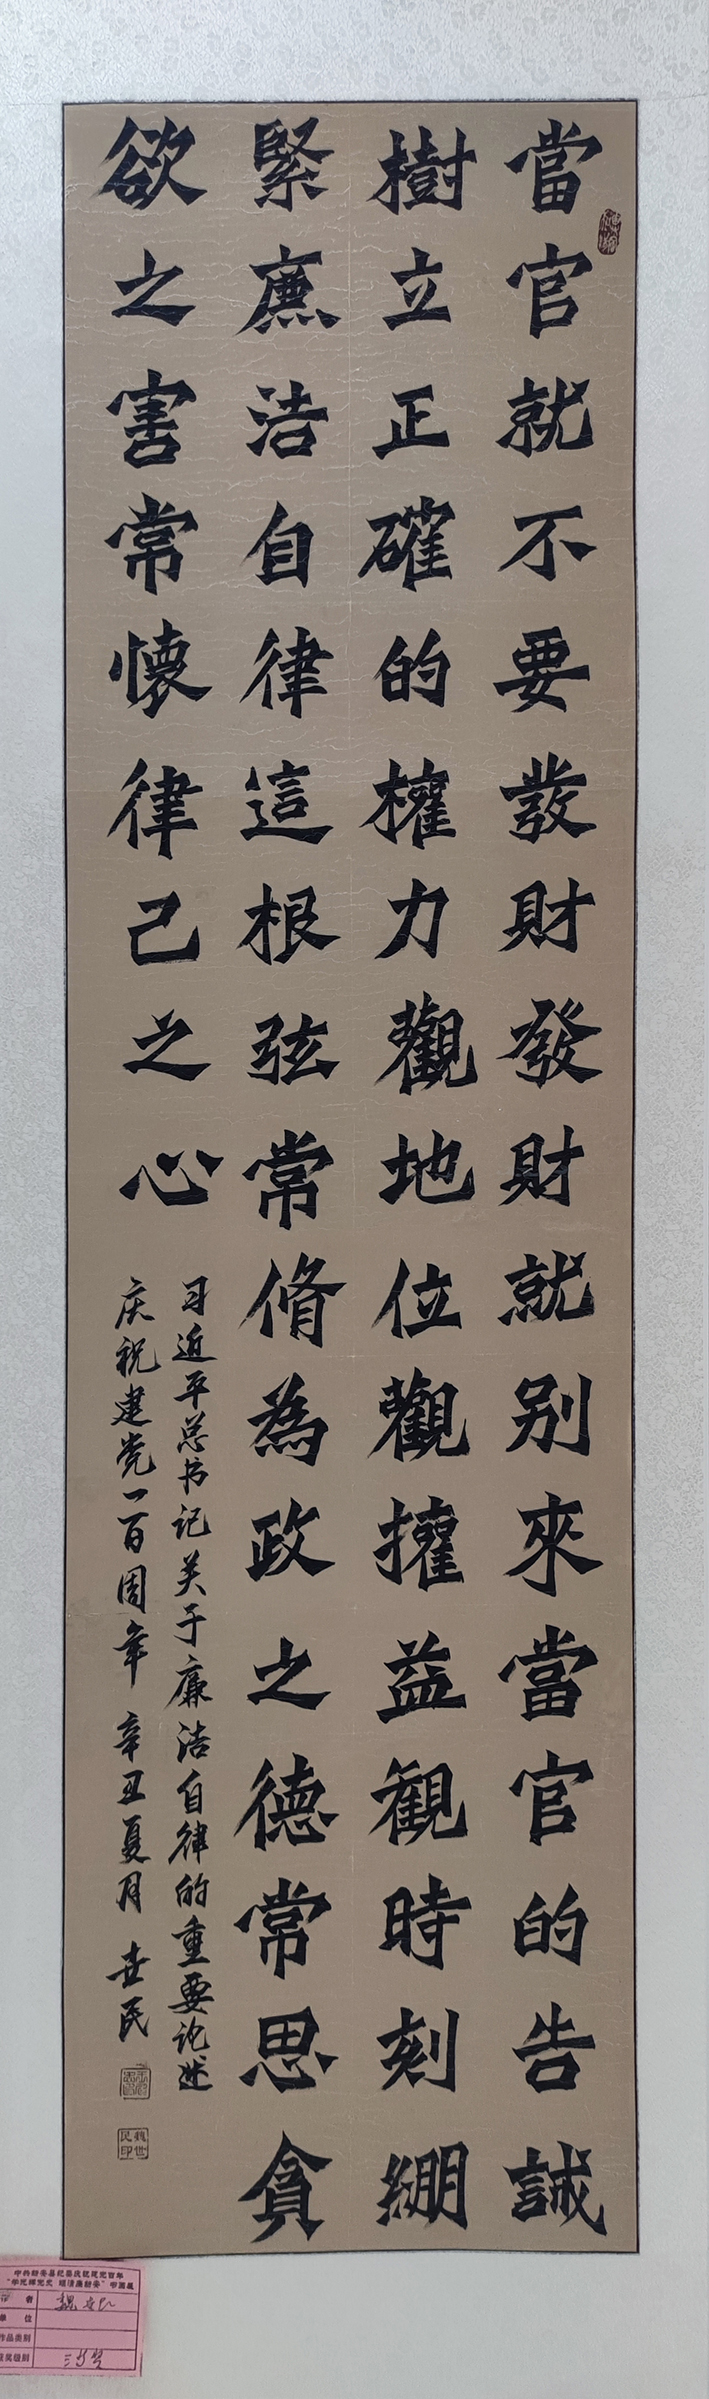 當官就不要發財發財就别來當官的告誡
樹立正確的權力觀地位觀權益觀時刻繃
緊廉洁自律這根弦常脩為政之德常思貪
欲之害常懷律己之心
习近平总书记关于廉洁自律的重要论述
庆祝建党一百周年 辛丑夏月 世民
魏世民印
中共新安县纪委庆祝建党百年
者
单位
作品类别
获奖级别